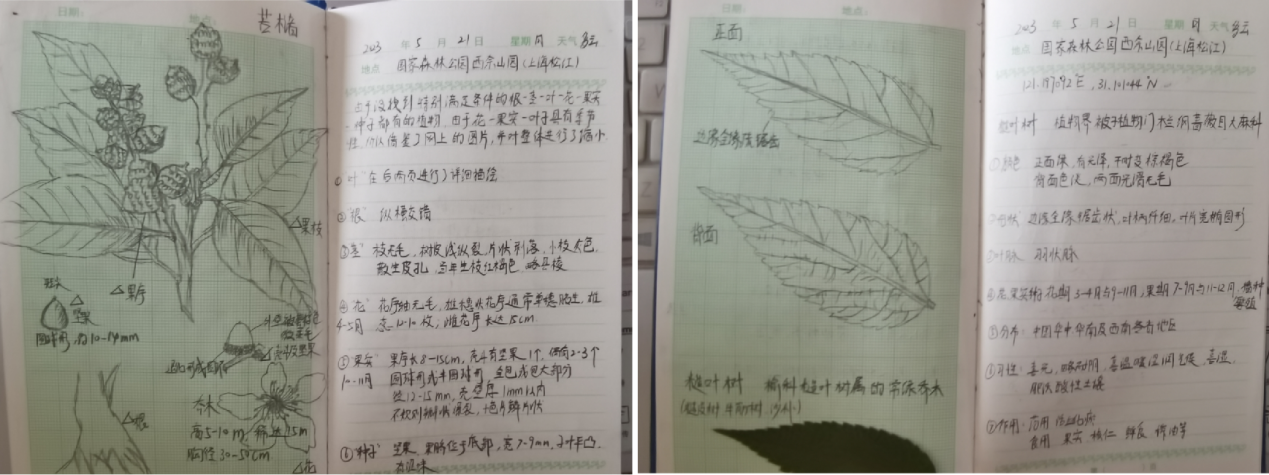 日期：
地点：
苦槠
△果枝
△果序
△坚果
圆锥形，约10-14mm
△壳斗及坚果
△根
乔木
高5-10m，稀达15m
胸径30-50cm
△花
2023年5月21日 星期日 天气多云
地点 国家森林公园西佘山园（上海松江）
由于没找到特别满足条件的根-茎-叶-花-果实
-种子都有的植物，由于花-果实-叶子具有季节
性，所以借鉴了网上的图片，并对整体进行了缩小
①"叶"在后两页进行了详细描绘
②"根" 纵横交错
③"茎" 枝无毛，树皮浅纵裂，片状剥落，小枝灰色，
散生皮孔，当年生枝红褐色，略具棱
④"花" 花序轴无毛，雄穗状花序通常单穗腋生，雄
4-5月 蕊12-10枚；雌花序长达15cm
⑤"果实" 果序长8-15cm，壳斗有坚果1个，偶有2-3个
10-11月 圆球形或半圆球形，全包或包大部分
径12-15mm，壳壁厚1mm以内
不规则瓣状爆裂，小苞片鳞片状
⑥"种子" 坚果，果脐位于底部，宽7-9mm，子叶平凸，
有涩味
日期：
地点：
正面
边缘全缘或锯齿
背面
糙叶树 榆科糙叶树属的落叶乔木
2023年5月21日 星期日 天气多云
地点 国家森林公园西佘山园（上海松江）
121.197092°E，31.10144°N
糙叶树 植物界被子植物门木兰纲蔷薇目大麻科
①颜色 正面深，有光泽，干时变棕褐色
背面色淡，两面光滑无毛
②形状 边缘全缘锯齿状，叶柄纤细，叶片克椭圆形
③叶脉 羽状脉
④花果实时 花期3-4月与9-11月，果期7-9月与11-12月 播种
⑤分布：中国华中华南及西南各省地区
⑥习性：喜光，略耐阴，喜温暖湿润气候，喜湿，
肥沃酸性土壤
⑦作用：药用
食用 果实